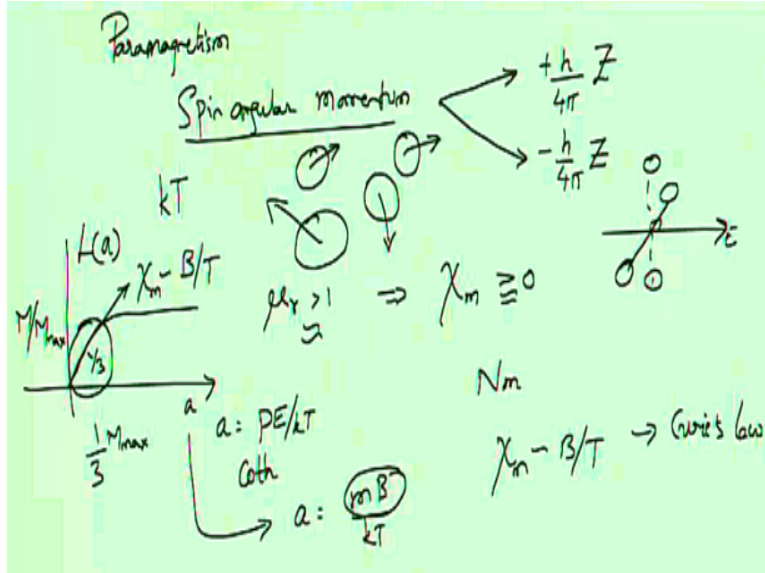 Paramagnetism
Spin angular momentum
+h/4π Z
-h/4π Z
kT
L(a)
χm - B/T
M/Mmax
1/3
μr > 1 ⇒ χm ≥ 0
E
a
1/3 Mmax
a: PE/kT
Coth
a: mB/kT
Nm
χm - B/T → Curie's law